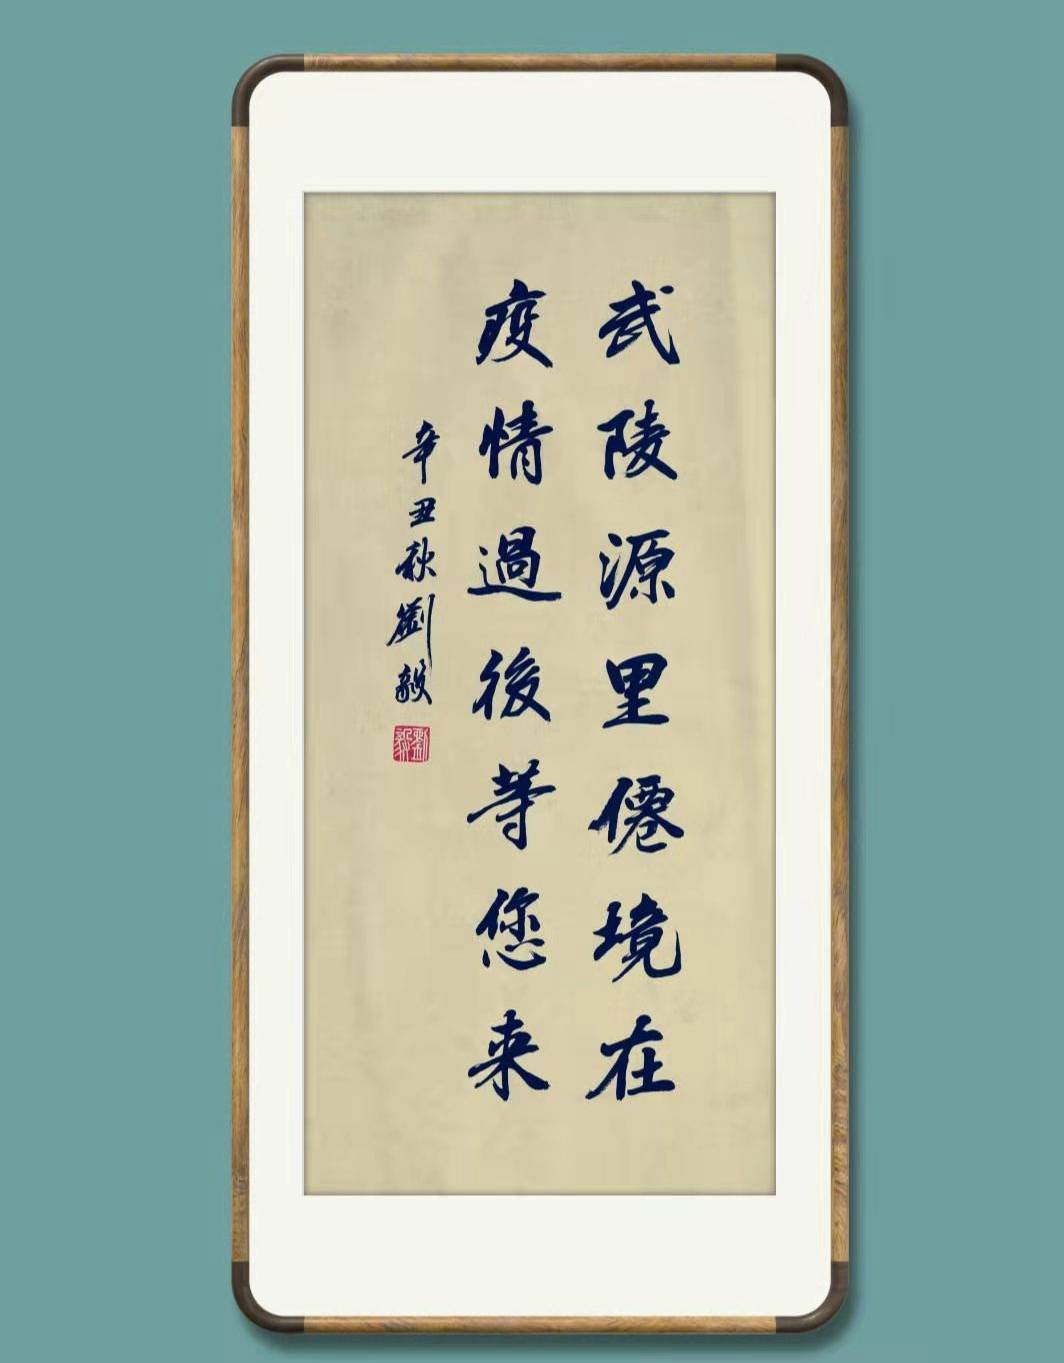 武陵源里僊境在
疫情過後等您来
辛丑秋劉毅
劉毅